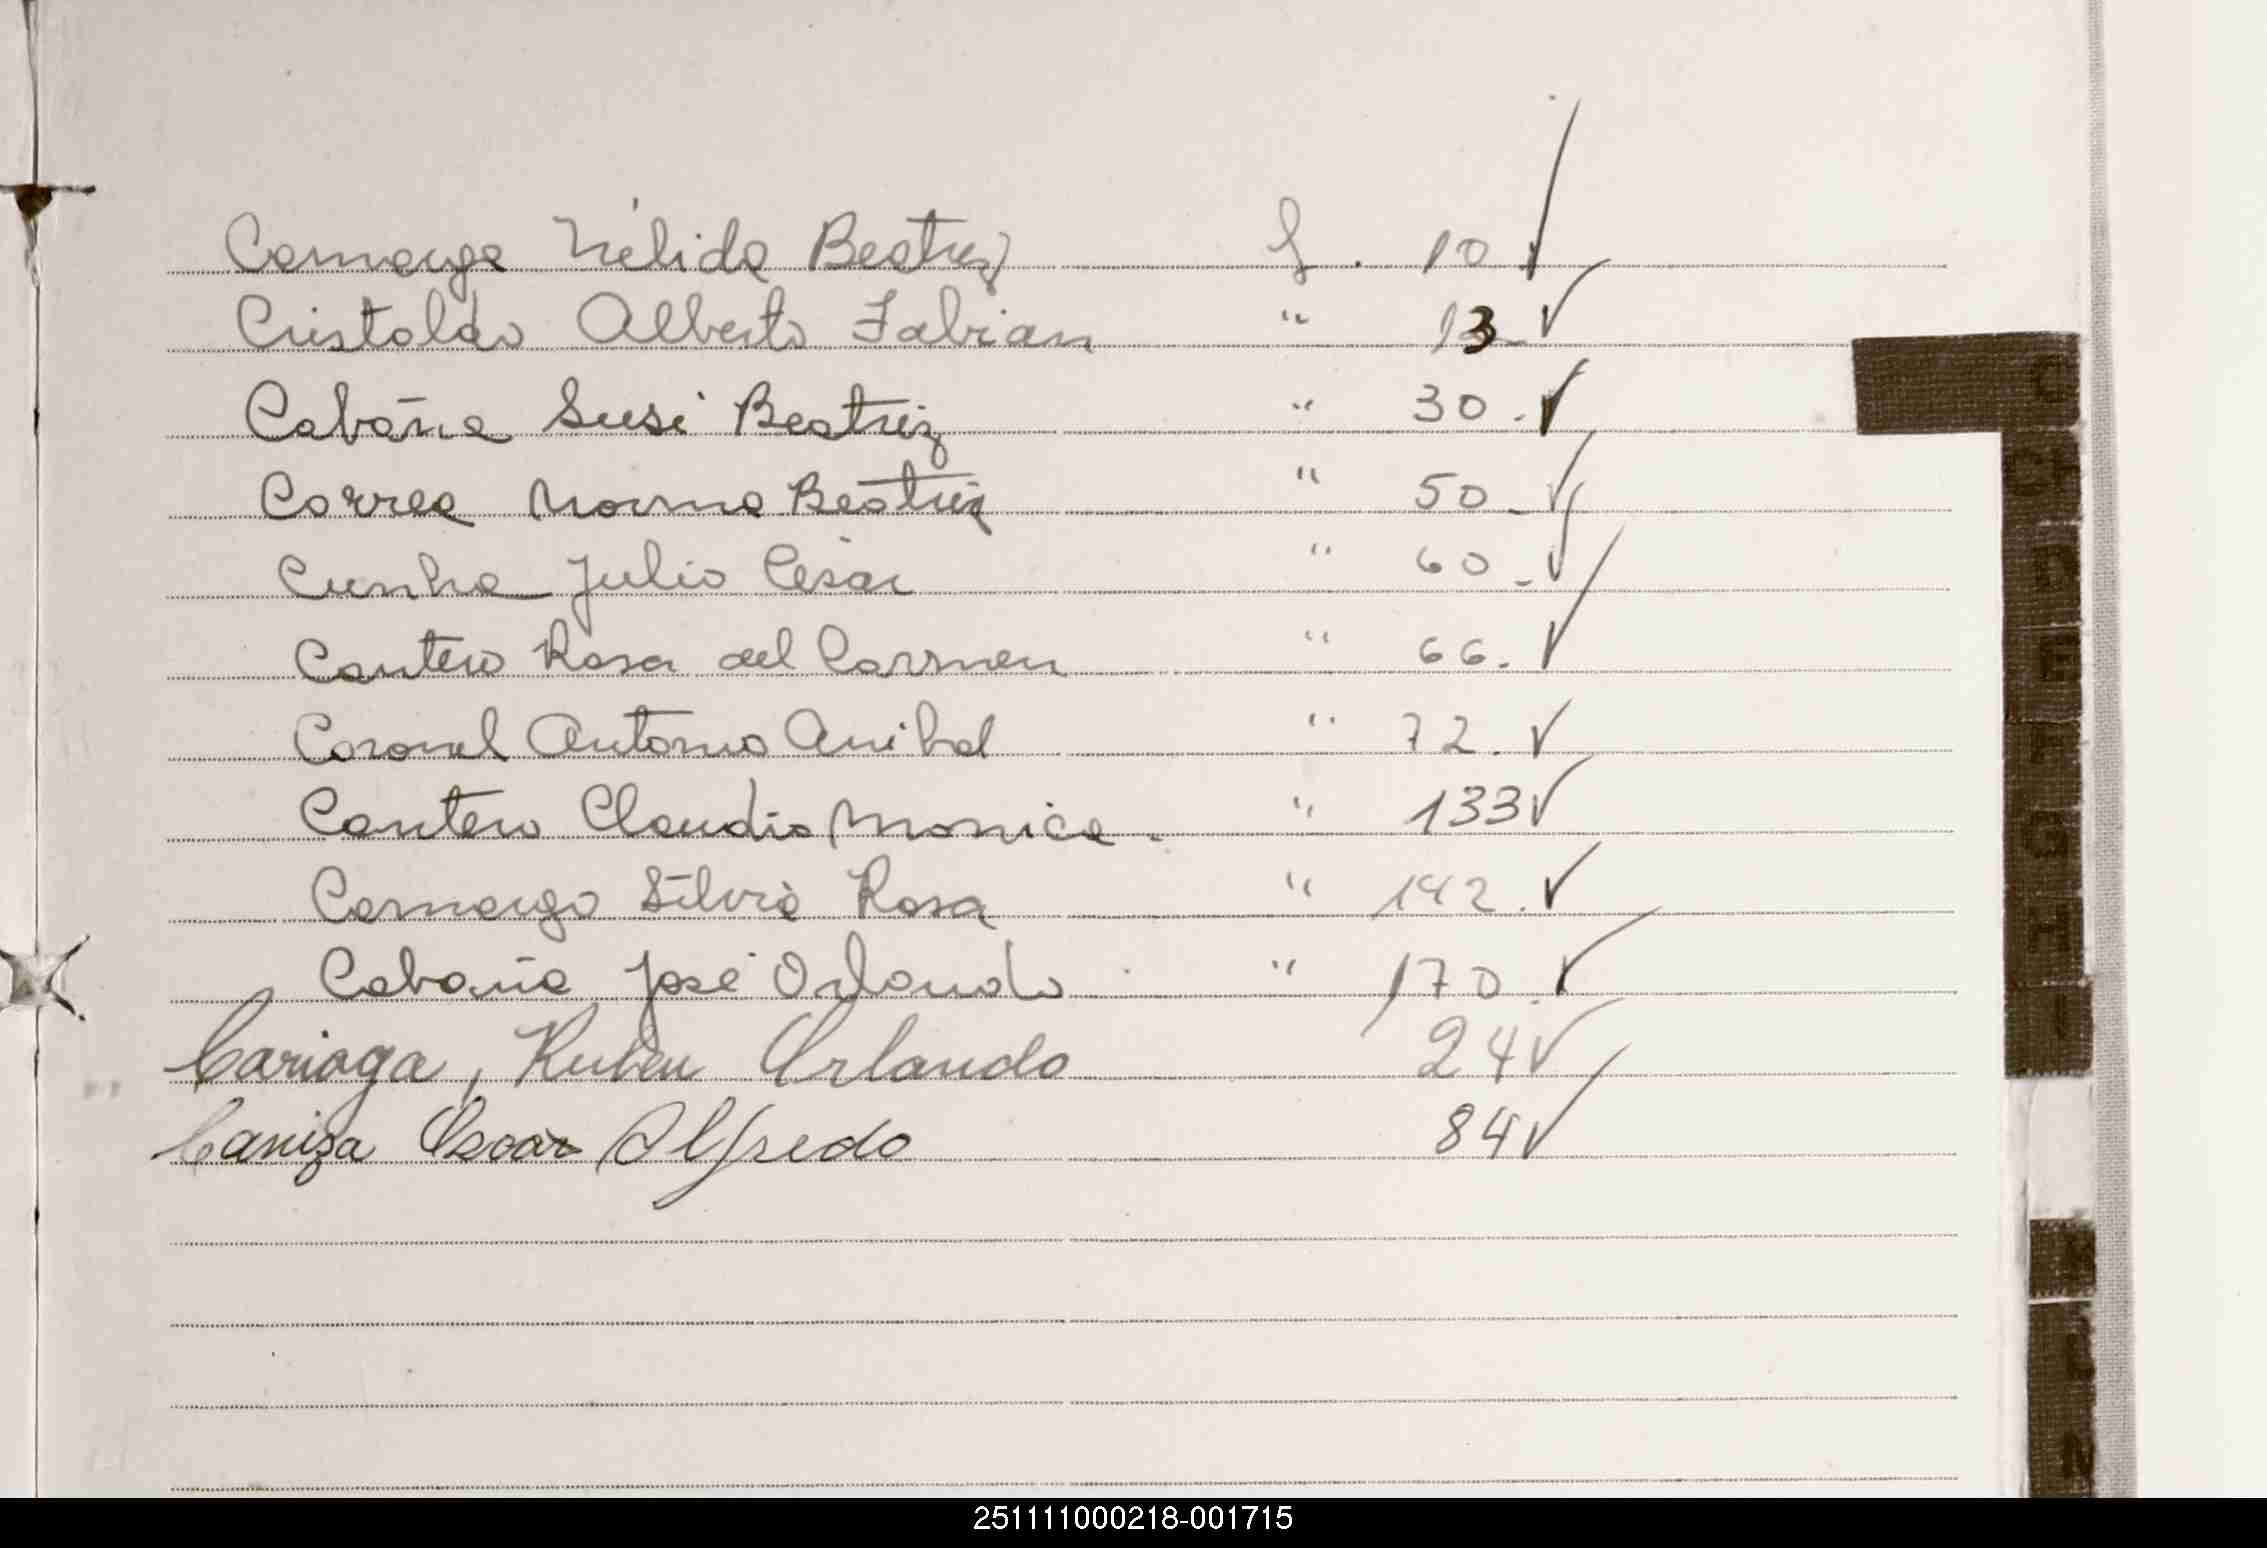 Camargo Nélida Beatriz f. 10 ✓
Cristaldo Alberto Fabian " 13 ✓
Cabaña Susi Beatriz " 30 ✓
Correa Norma Beatriz " 50 ✓
Cunha Julio César " 60 ✓
Cantero Rosa del Carmen " 66. ✓
Coronel Antonio Anibal " 72. ✓
Cantero Claudia Monica. " 133 ✓
Camargo Silvia Rosa " 142. ✓
Cabaña José Orlando " 170. ✓
Cariaga, Ruben Orlando 24 ✓
Caniza Oscar Alfredo 84 ✓
C
CH
D
E
F
G
H
I
L
M
251111000218-001715